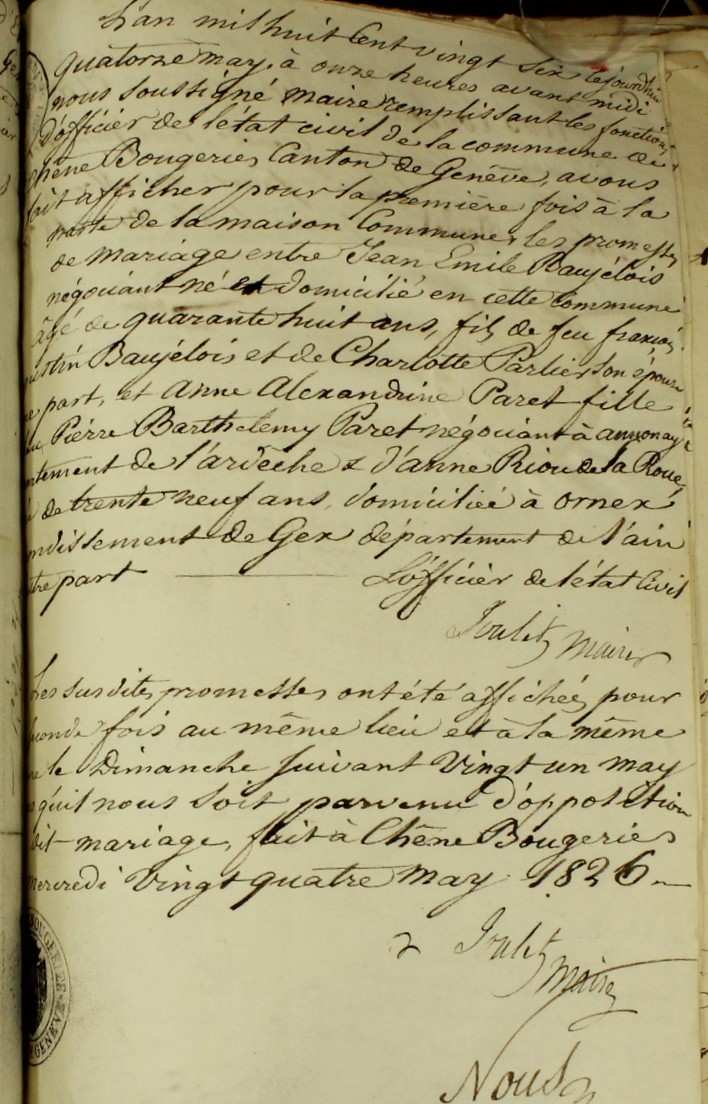 L'an mil huit Cent vingt six le jourd'hui
quatorze may, à onze heures avant midi
nous soussigné maire remplissant les fonctions
d'officier de l'état civil de la commune de
Chêne Bougeries, Canton de Genêve, avons
fait afficher pour la première fois à la
porte de la maison Commune, les promesses
de mariage entre Jean Emile Baujélois
négociant né et domicilié en cette commune
âgé de quarante huit ans, fils de feu françois
Baujélois et de Charlotte Parlier son épouse
part, et Anne Alexandrine Paret fille
Pierre Barthelemy Paret négociant à annonay
rtement de l'ardêche & d'anne Riou de la Roue,
de trente neuf ans, domiciliée à ornex
ndissement de Gex département de l'ain
tre part L'officier de l'état Civil
maire
Les susdites promesses ont été affichées pour
conde fois au même lieu et à la même
le Dimanche suivant Vingt un may
qu'il nous soit parvenu d'opposition
dit mariage, fait à Chêne Bougeries
mercredi Vingt quatre may 1826
maire
BOUGERIES
GENEVE
Nous